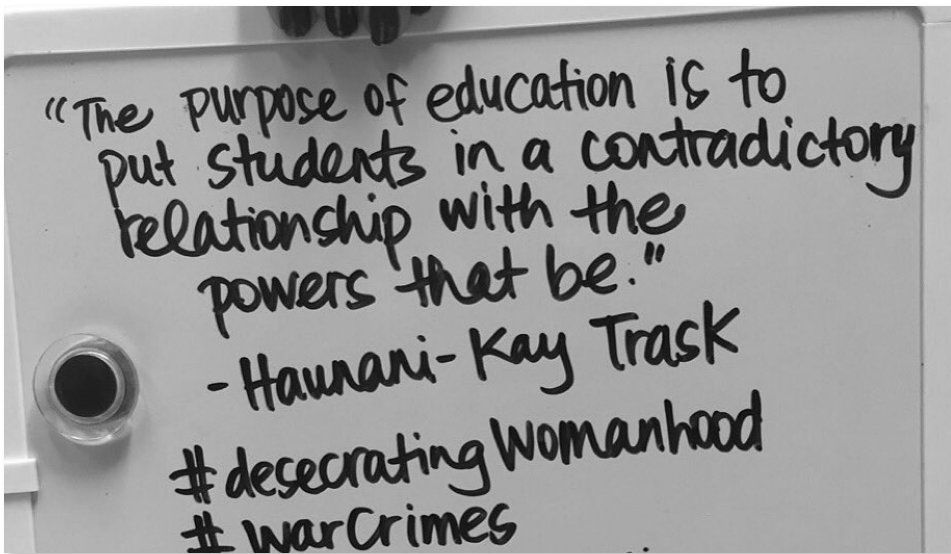 "The purpose of education is to
put students in a contradictory
relationship with the
powers that be."
- Haunani-Kay Trask
#desecratingWomanhood
#warCrimes